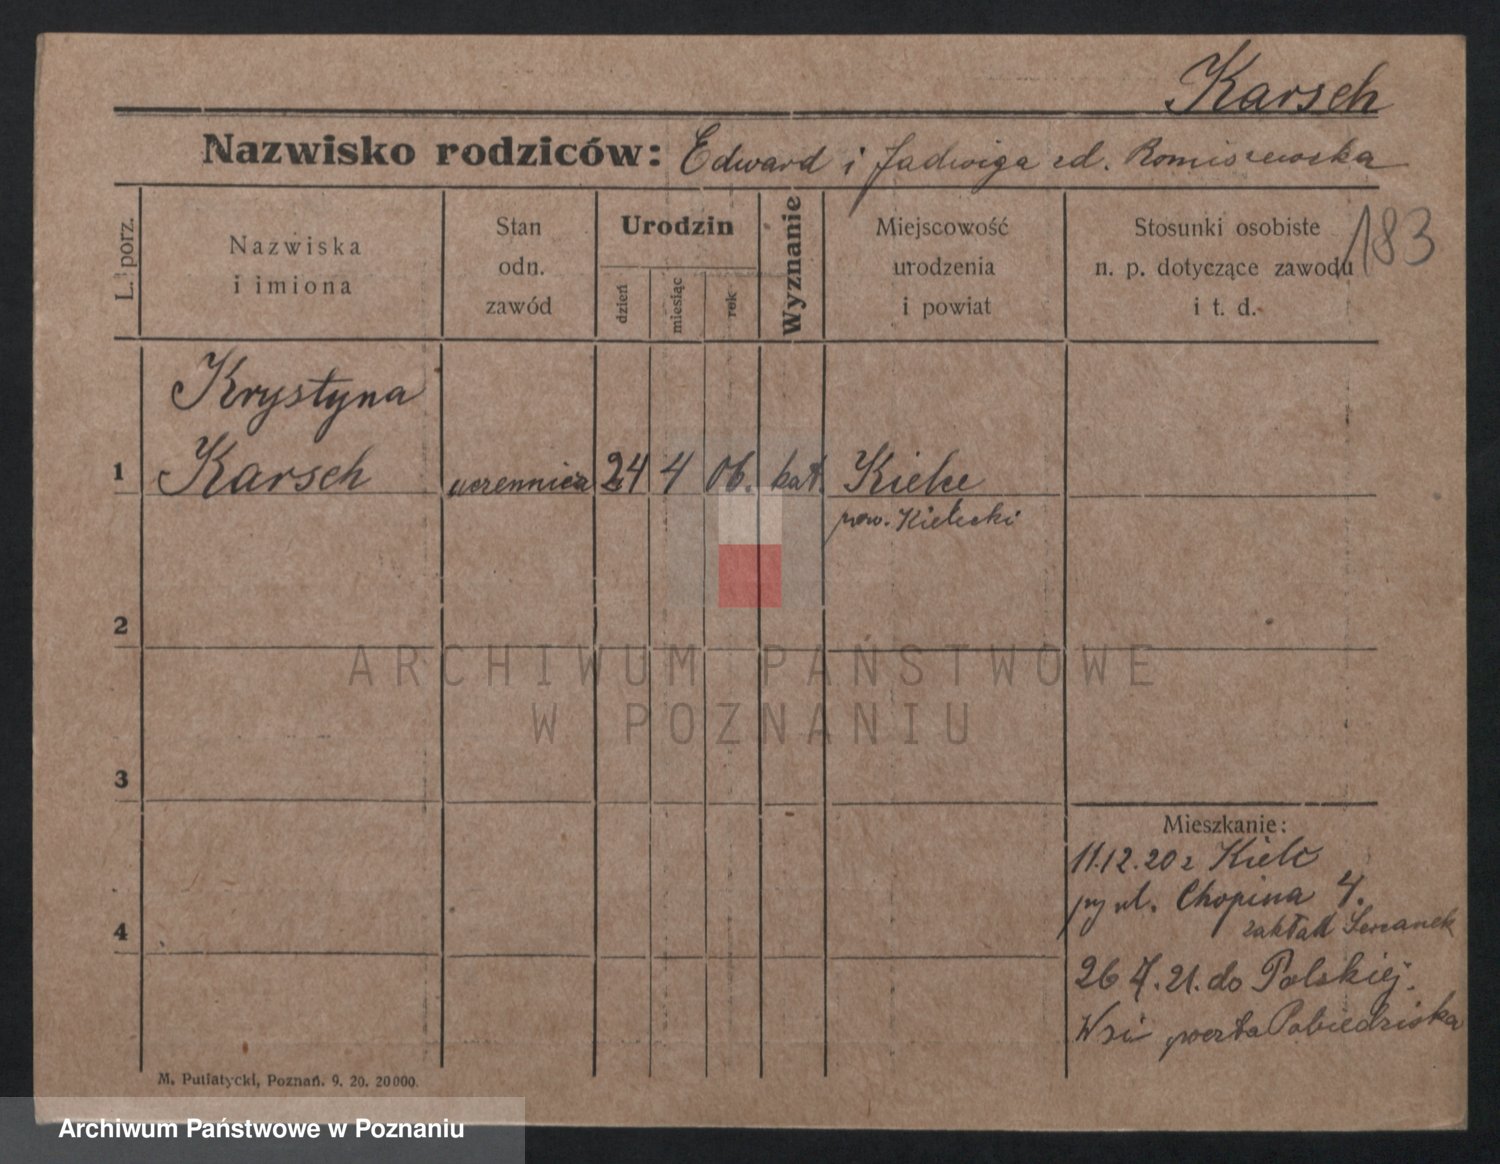 Karsch
Nazwisko rodziców: Edward i Jadwiga zd. Romiszewska
L. porz.
Nazwiska
i imiona
Stan
odn.
zawód
Urodzin
dzień
miesiąc
rok
Wyznanie
Miejscowość
urodzenia
i powiat
Stosunki osobiste
n. p. dotyczące zawodu
i t. d.
183
Krystyna
1 Karsch uczennica 24 4 06. kat. Kielce
pow. Kielecki
2
3
4
Mieszkanie:
11.12.20 z Kielc
pzy ul. Chopina 4.
zakład Sercanek
26 7.21. do Polskiej
Wsi poczta Pobiedziska
M. Putiatycki, Poznań. 9. 20. 20000.
ARCHIWUM PAŃSTWOWE
W POZNANIU
Archiwum Państwowe w Poznaniu